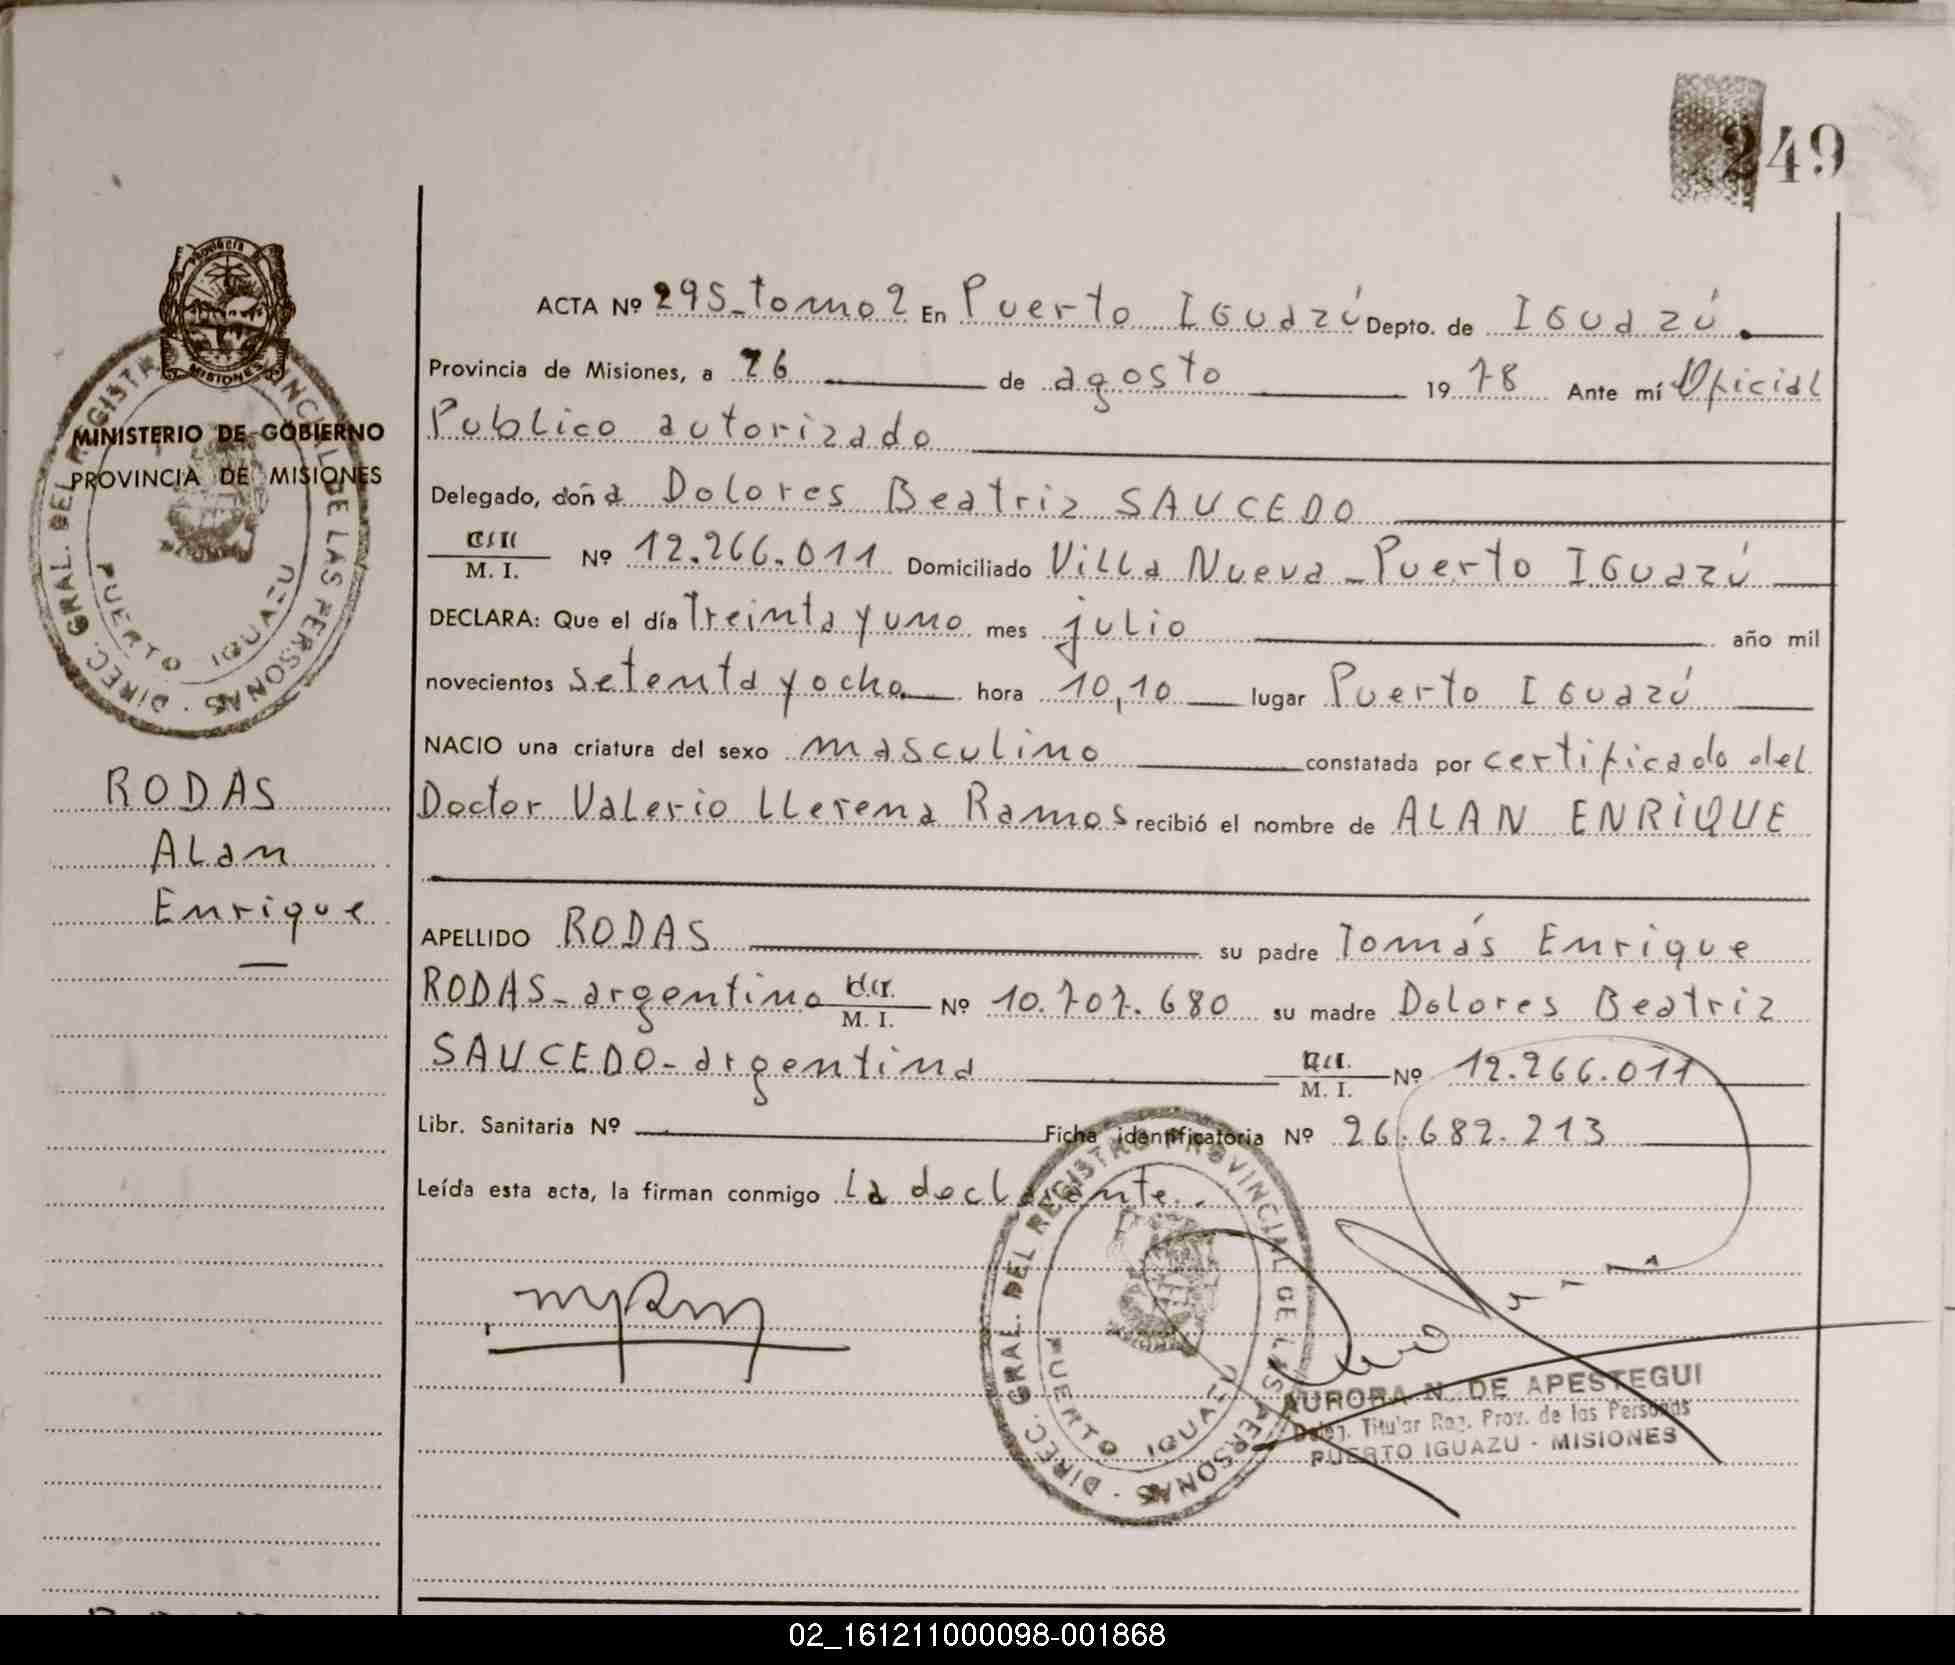 249
PROVINCIA
MISIONES
MINISTERIO DE GOBIERNO
PROVINCIA DE MISIONES
DIREC. GRAL. DEL REGISTRO PROVINCIAL DE LAS PERSONAS
PUERTO IGUAZU
RODAS
Alan
Enrique
ACTA Nº 295-tomo 2 En Puerto Iguazú Depto. de Iguazú
Provincia de Misiones, a 26 de agosto 1978 Ante mí Oficial
Publico autorizado
Delegado, doña Dolores Beatriz SAUCEDO
M. I. Nº 12.266.011 Domiciliado Villa Nueva - Puerto Iguazú
DECLARA: Que el día Treinta y uno mes julio año mil
novecientos setenta y ocho hora 10,10 lugar Puerto Iguazú
NACIO una criatura del sexo masculino constatada por certificado del
Doctor Valerio Llerena Ramos recibió el nombre de ALAN ENRIQUE
APELLIDO RODAS su padre Tomás Enrique
RODAS - argentino M. I. Nº 10.707.680 su madre Dolores Beatriz
SAUCEDO - argentina M. I. Nº 12.266.011
Libr. Sanitaria Nº Ficha identificatoria Nº 26.682.213
Leída esta acta, la firman conmigo la declarante.
DIREC. GRAL. DEL REGISTRO PROVINCIAL DE LAS PERSONAS
PUERTO IGUAZU
AURORA N. DE APESTEGUI
Deleg. Titular Reg. Prov. de las Personas
PUERTO IGUAZU - MISIONES
02_161211000098-001868